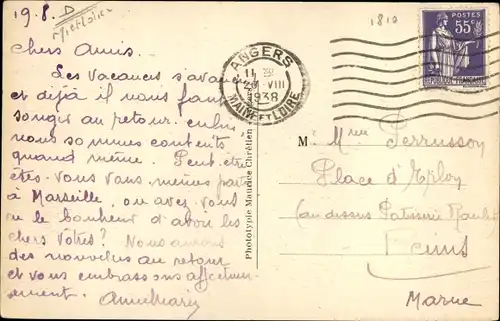 19.8.
D
1810
Chers Amis.
Les Vacances s'avancent
et déjà il nous faut
songer au retour. enfin,
nous sommes contents
quand même. Peut-être
êtes-vous vous mêmes partis
à Marseille, ou avez-vous
eu le bonheur d'avoir les
chers vôtres? Nous aurons
des nouvelles au retour
et vous embrassons affectueu-
sement. AnneMarie
Phototypie Maurice Chrétien
ANGERS
11 H
20 VIII
1938
MAINE ET LOIRE
POSTES
55c
M Perrusson
Place d'Erlon
(au dessus Patisserie
Reims
Marne